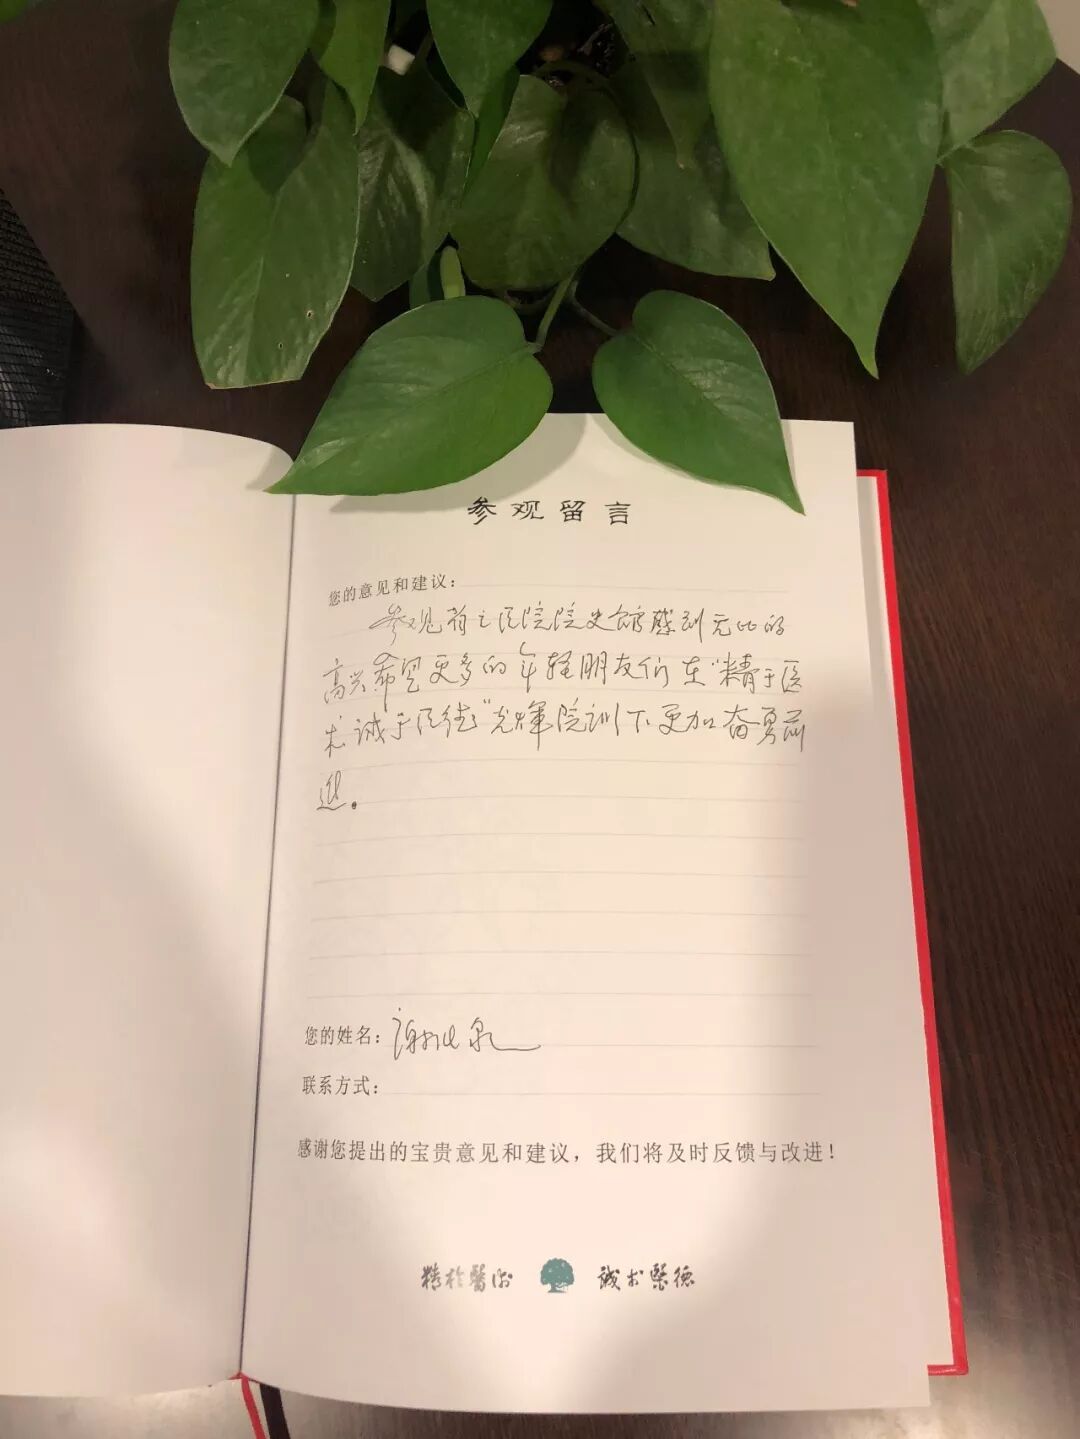 参观留言
您的意见和建议：
参观省立医院院史馆感到无比的
高兴希望更多的年轻朋友们在“精于医
术诚于医德”光辉院训下更加奋勇前
进。
您的姓名：谢
联系方式：
感谢您提出的宝贵意见和建议，我们将及时反馈与改进！
精於醫術 誠於醫德